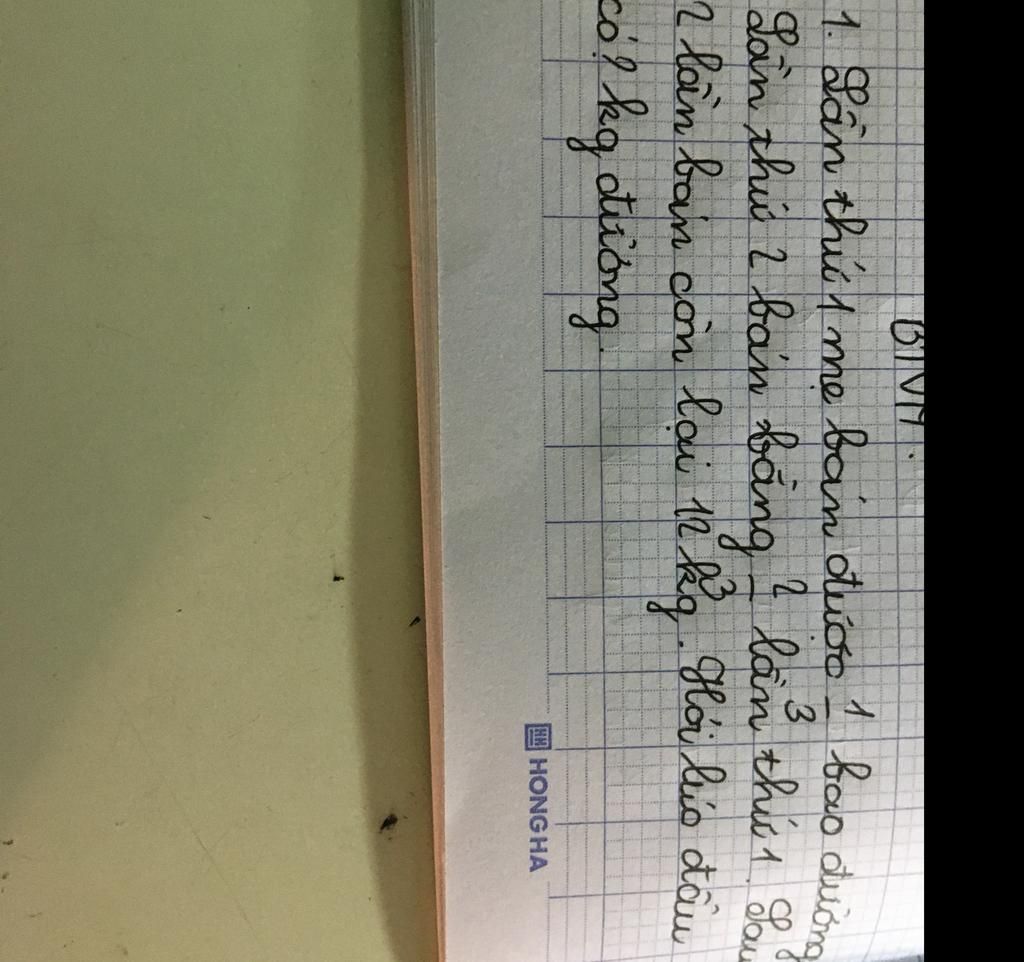 BTVN.
1. Lần thứ 1 mẹ bán được 1/3 bao đường
Lần thứ 2 bán bằng 2/3 lần thứ 1. Sau
2 lần bán còn lại 12 kg. Hỏi lúc đầu
có ? kg đường.
HH HONG HA